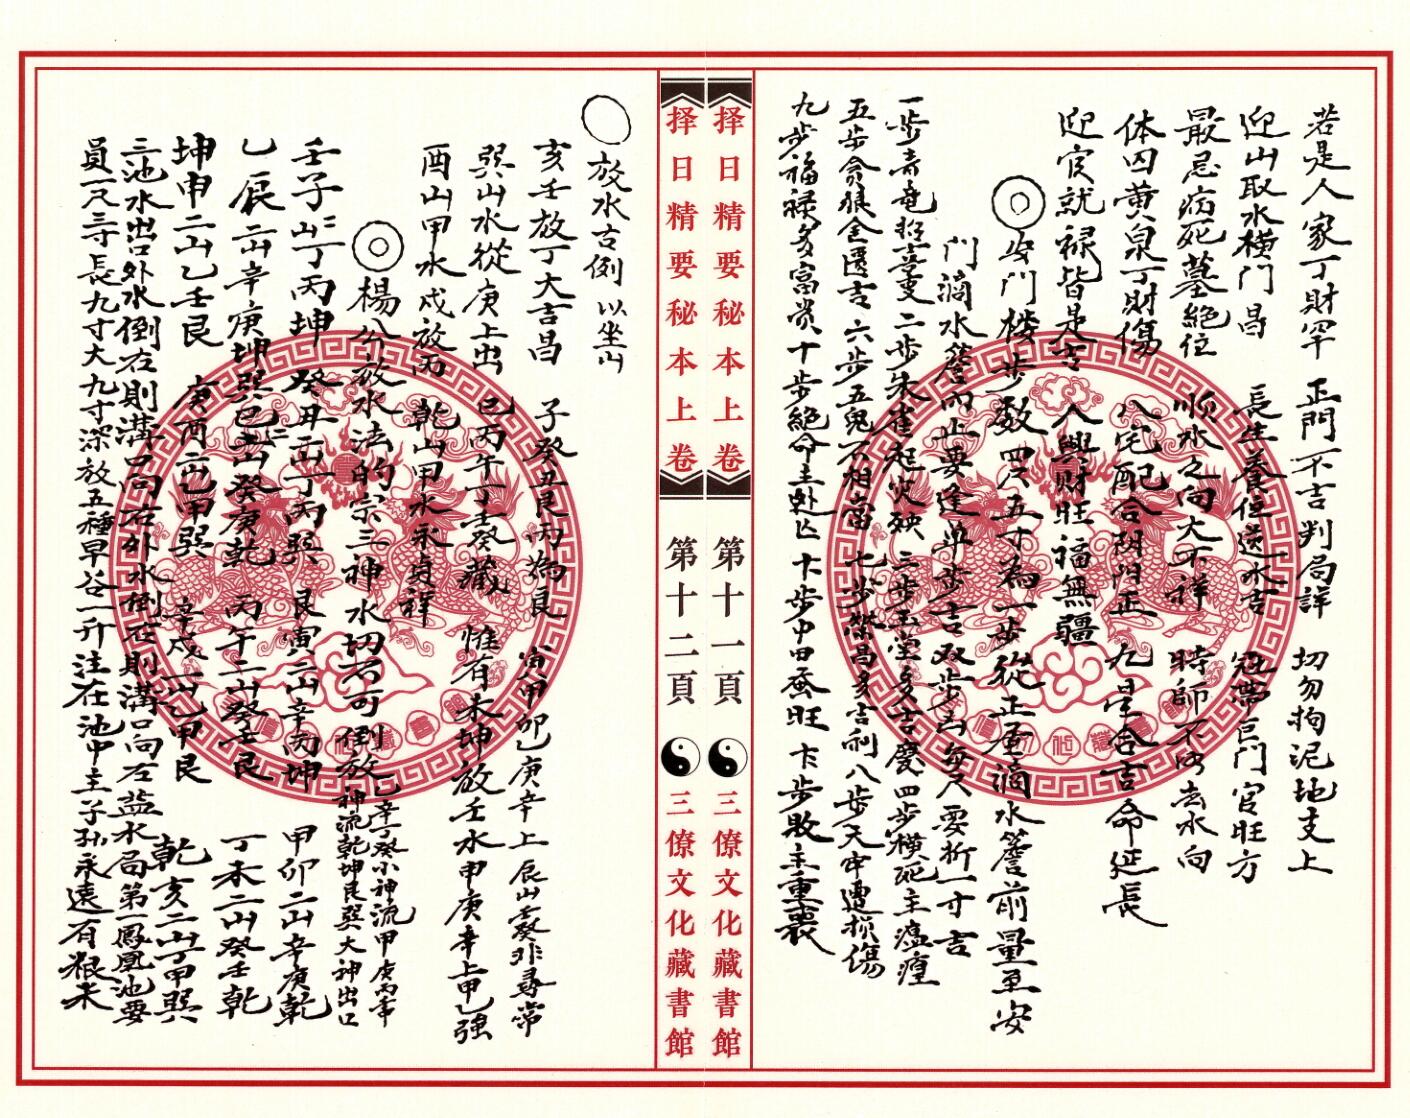 若是人家丁財罕 正門不吉判局詳 切勿拘泥地支上
迎山取水橫門昌 長生養位送水吉 冠帶官門官旺方
最忌病死墓絕位 順水之向大不祥 時師不識去水向
体囚黄泉丁財傷 八宅配合阴阳正 九星合吉命延長
迎官就禄皆是吉 人興財旺福無疆
安門楼步数 四尺五寸為一步 從正屋滴水簷前量至安
門滴水簷而止 要逢单步吉 双步凶 每尺要折一寸吉
一步青竜招喜事 二步朱雀起灾殃 三步玉堂多吉慶 四步橫死主瘟瘟
五步貪狼金匱吉 六步五鬼不相當 七步榮昌多吉利 八步天牢遭损傷
九步福禄多富贵 十步絕命主处亡 十步中田蚕旺 步敗主重喪
择日精要秘本上卷 第十一頁 三僚文化藏書館
择日精要秘本上卷 第十二頁 三僚文化藏書館
放水古例 以坐山
亥壬放丁大吉昌 子癸丑艮丙為良 寅甲卯乙庚辛上 辰山壬癸非尋常
巽山水從庚上出 巳丙午丁壬癸藏 惟有未坤放壬水 申庚辛上甲乙強
酉山甲水戌放丙 乾山甲水永貞祥
楊公放水法的宗 三神水切不可倒放 乙辛丁癸小神流 甲庚丙壬中神流 乾坤艮巽大神出口
壬子二山丁丙坤 癸丑二山丁丙巽 艮寅二山辛丙坤 甲卯二山辛庚乾
乙辰二山辛庚坤 巽巳二山癸庚乾 丙午二山癸壬艮 丁未二山癸壬乾
坤申二山乙壬艮 庚酉二山乙甲巽 辛戌二山乙甲艮 乾亥二山丁甲巽
三池水出口外水倒右則溝口向右 外水倒左則溝口向左 盐水局第一鳳凰池要
員一尺三寸長九寸大九寸深放五種早谷一升注在池中主子孙永遠有粮米